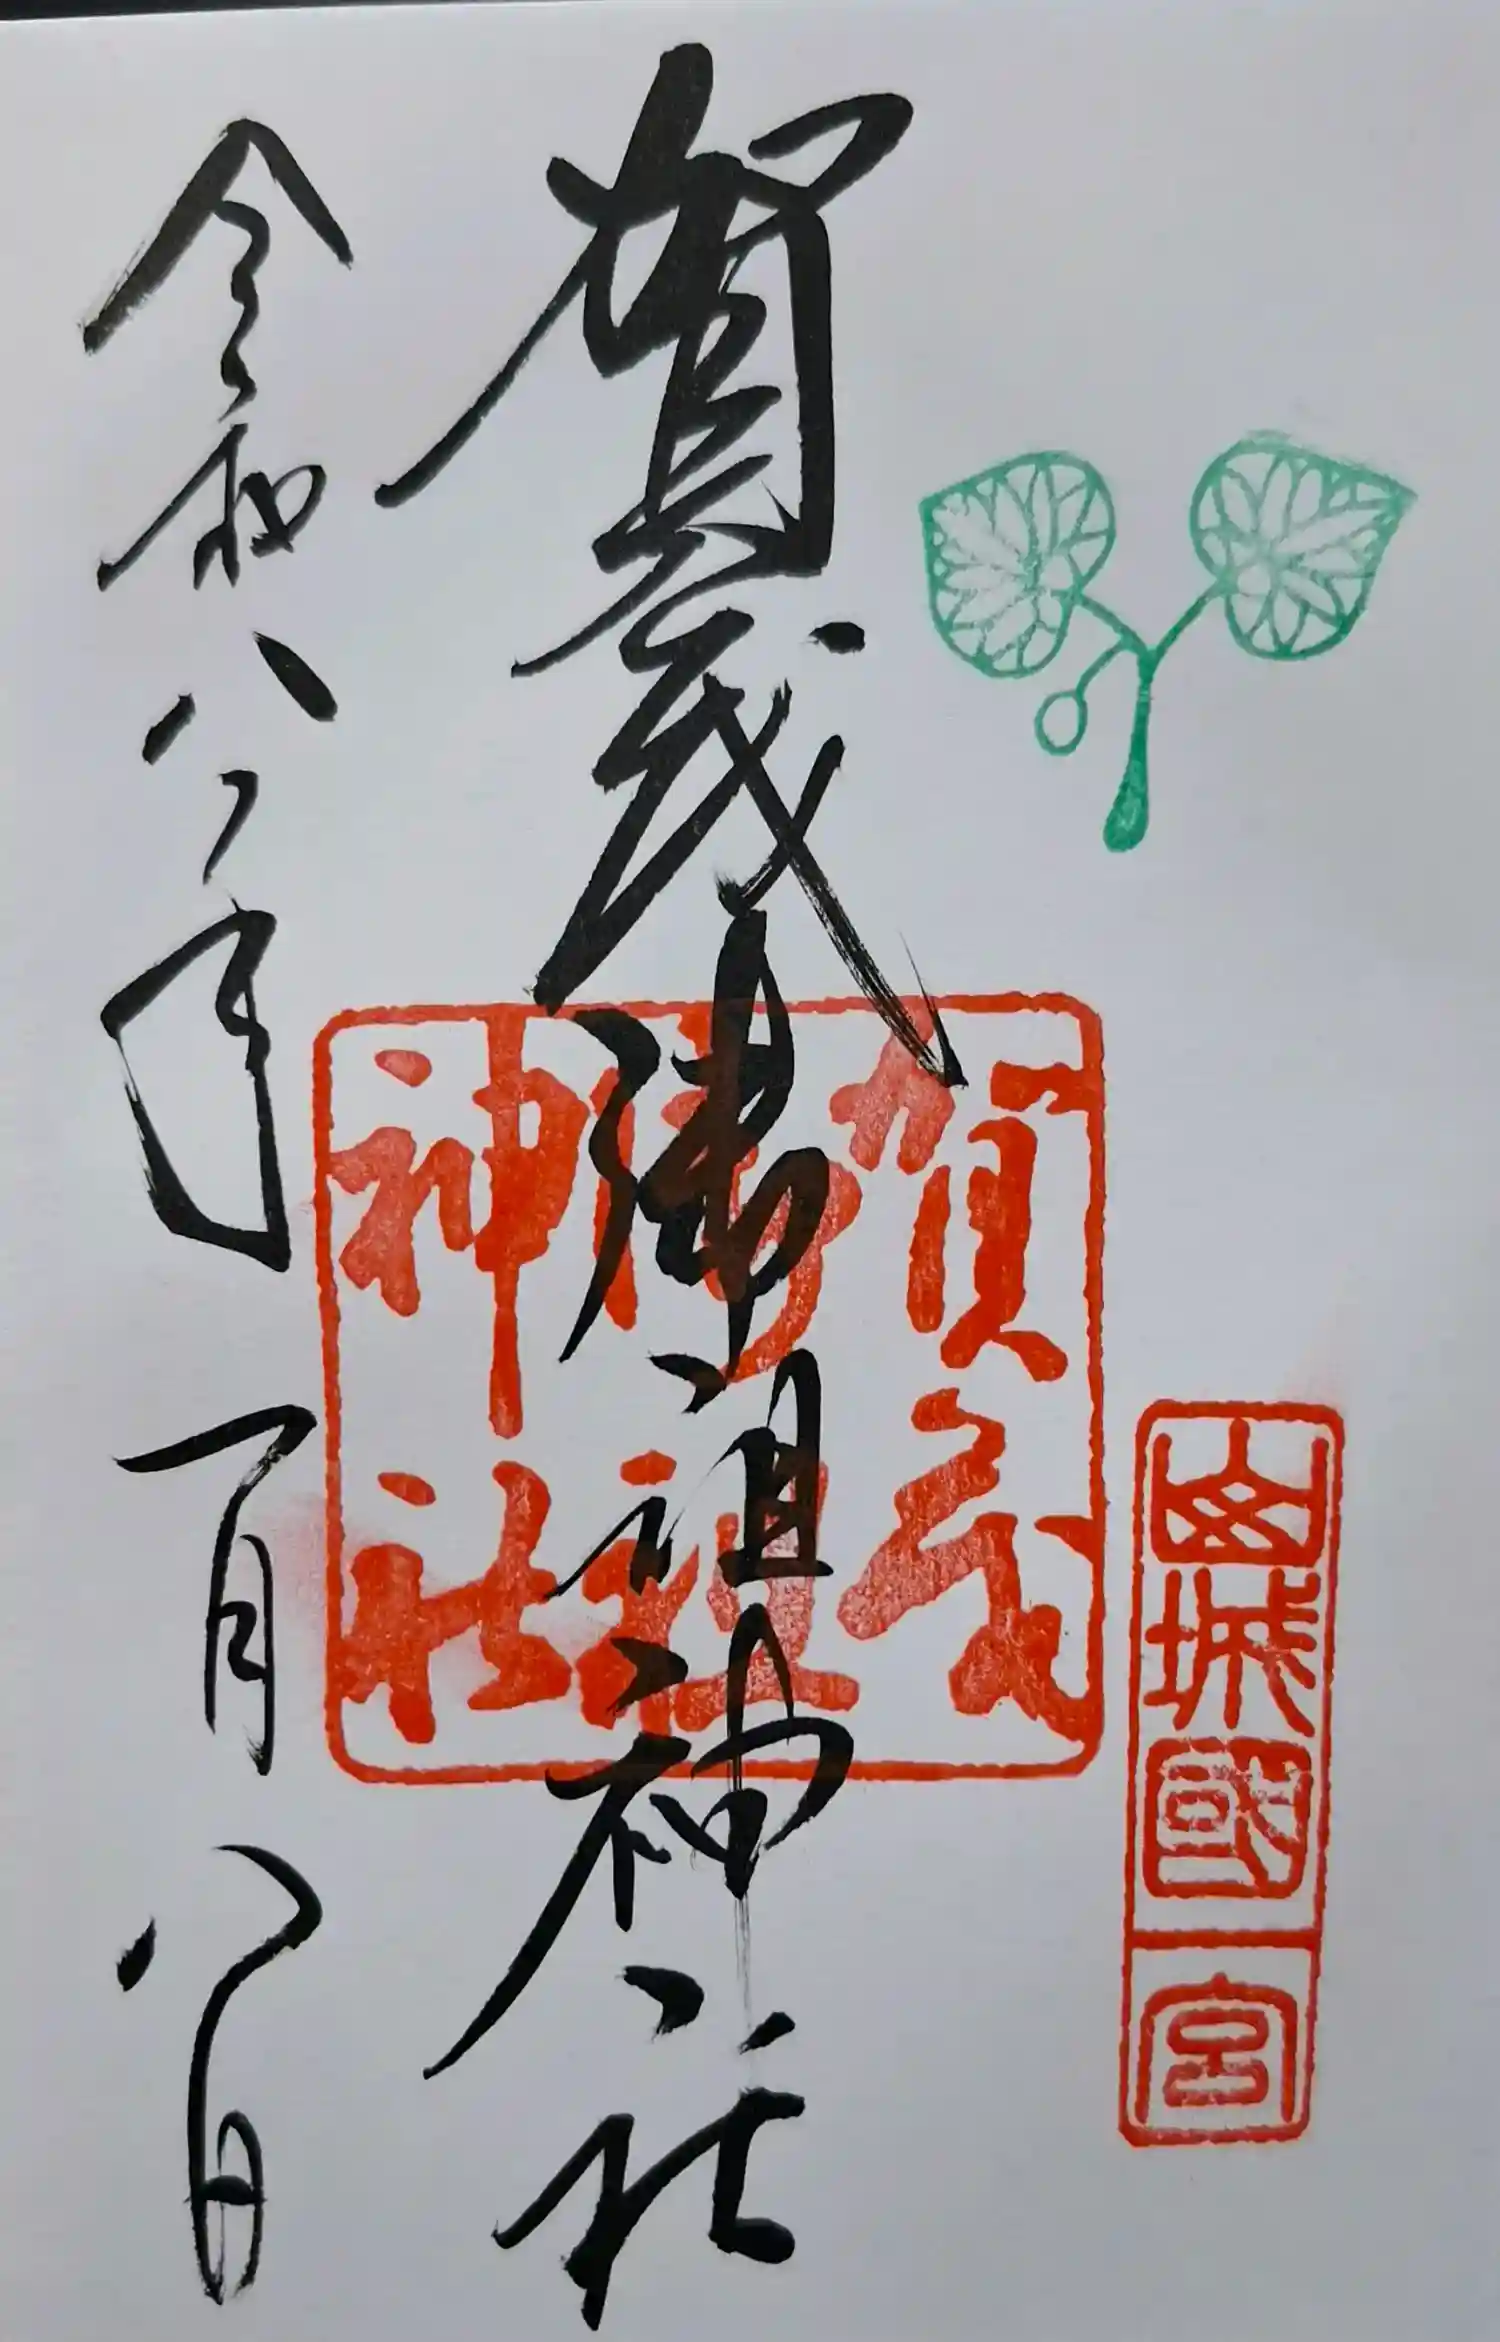 山城國一宮
賀茂御祖神社
賀茂
御祖
神社
令和八年一月八日